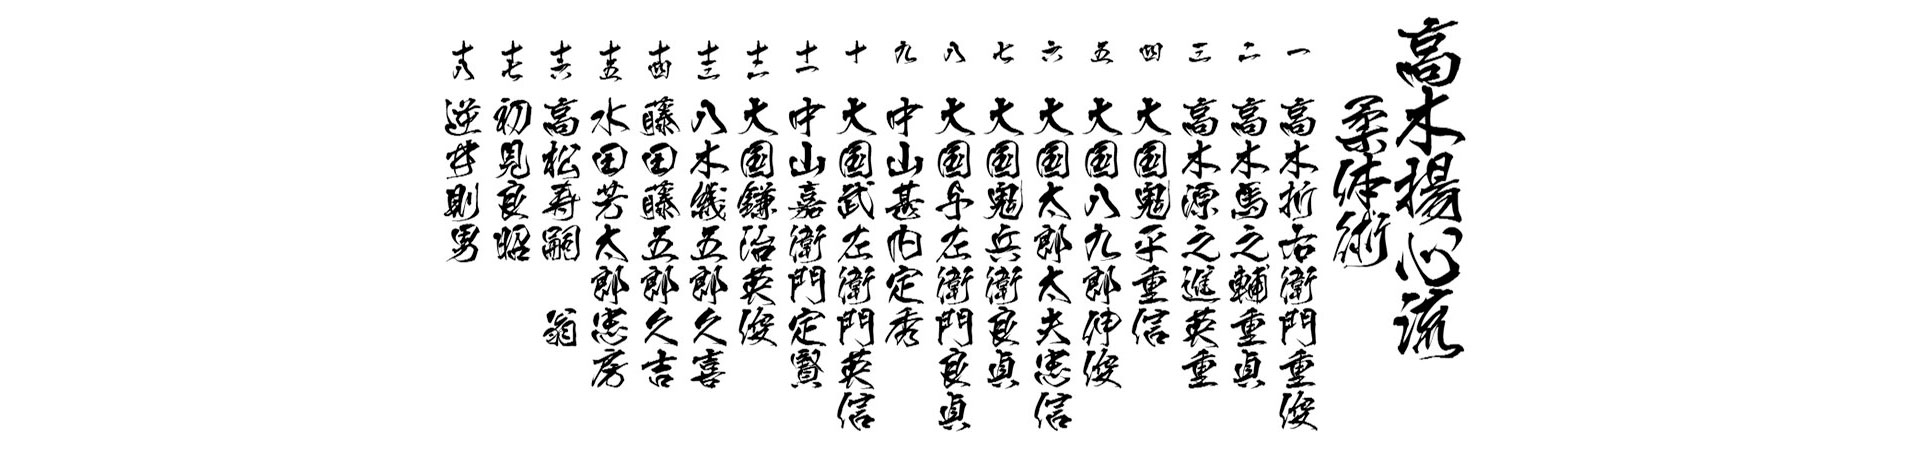 高木揚心流
柔体術
一 高木折右衛門重俊
二 高木馬之輔重貞
三 高木源之進英重
四 大国鬼平重信
五 大国八九郎伸俊
六 大国太郎太夫忠信
七 大国鬼兵衛良貞
八 大国与左衛門良貞
九 中山甚内定秀
十 大国武左衛門英信
十一 中山嘉衛門定賢
十二 大国鎌治英俊
十三 八木幾五郎久喜
十四 藤田藤五郎久吉
十五 水田芳太郎忠房
十六 高松寿嗣 翁
十七 初見良昭
十八 逆井則男